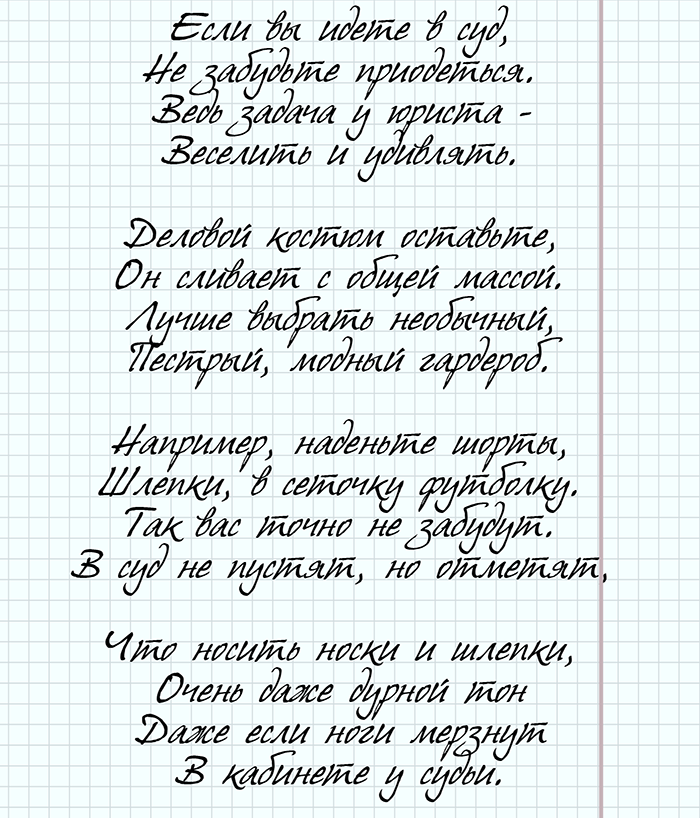 Если вы идете в суд,
Не забудьте приодеться.
Ведь задача у юриста -
Веселить и удивлять.
Деловой костюм оставьте,
Он сливает с общей массой.
Лучше выбрать необычный,
Пестрый, модный гардероб.
Например, наденьте шорты,
Шлепки, в сеточку футболку.
Так вас точно не забудут.
В суд не пустят, но отметят,
Что носить носки и шлепки,
Очень даже дурной тон
Даже если ноги мерзнут
В кабинете у судьи.